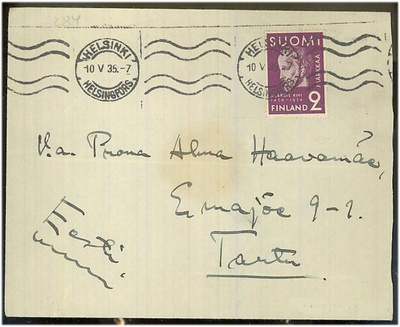 287
HELSINKI
10 V 35.-7
HELSINGFORS
HELSINKI
10 V 35.-7
HELSINGFORS
SUOMI
MARKKAA
ALEKSIS KIVI
1834-1934
FINLAND 2
V.a. Proua Alma Haavamäe,
Emajõe 9-1.
Tartu
Eesti